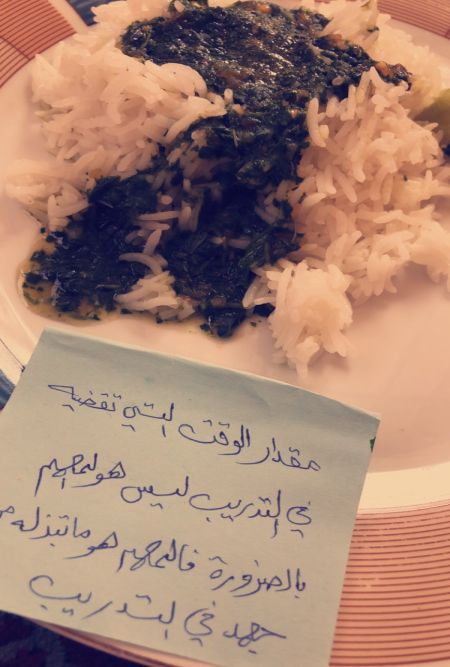 مقدار الوقت التي تقضيه
في التدريب ليس هو المهم
بالضرورة فالمهم هو ما تبذله من
جهد في التدريب